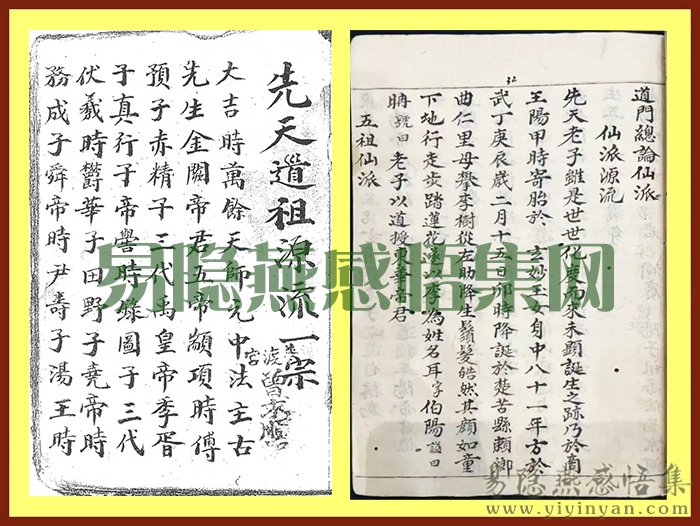 先天道祖源流一宗
大吉時萬餘天師元中法主古
先生金闕帝君五帝顓項時傅
預子赤精子三代禹皇帝季胥
子真行子帝嚳時錄圖子三代
伏羲時欝華子田野子堯帝時
務成子舜帝時尹壽子湯王時
道門總論仙派
仙派源流
先天老子雖是世世化度而來未顯誕生之跡乃於商
王陽甲時寄胎於 玄妙玉女身中八十一年方於
武丁庚辰歲二月十五日卯時降誕於楚苦縣賴鄉
曲仁里母攀李樹從左助降生鬚髮皓然其顏如童
下地行走步踏蓮花遂以李為姓名耳字伯陽謚曰
聃號曰老子以道授東華帝君
五祖仙派
易隐燕感悟集网
易隐燕感悟集
www.yiyinyan.com